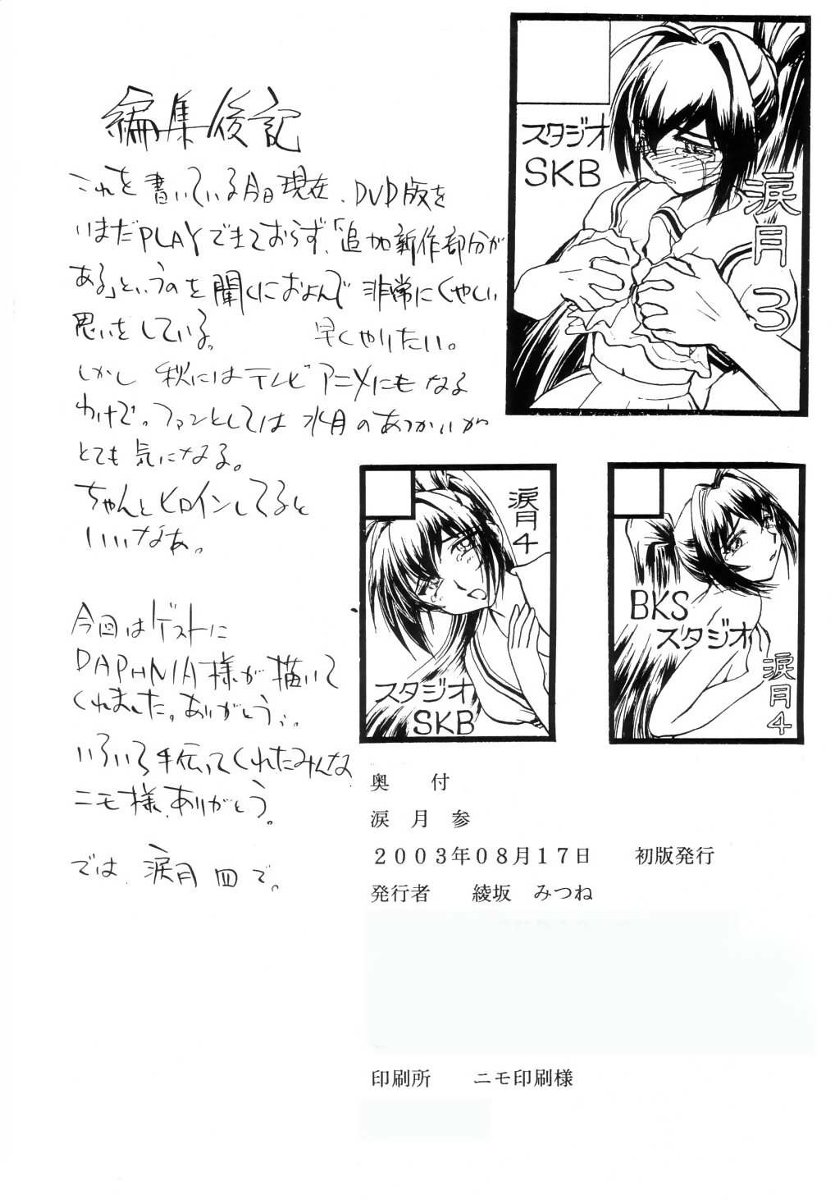 編集後記
これを書いている今日現在、DVD版を
いまだPLAYできておらず、「追加新作部分が
ある」というのを聞くにおよんで非常にくやしい
思いをしている。 早くやりたい。
しかし秋にはテレビアニメにもなる
わけで。ファンとしては水月のあつかいが
とても気になる。
ちゃんとヒロインしてると
いいなあ。
今回はゲストに
DAPHNIA様が描いて
くれました。ありがとう。
いろいろ手伝ってくれたみんな
ニモ様、ありがとう。
では、涙月四で。
スタジオ
SKB
涙月3
涙月4
スタジオ
SKB
BKS
スタジオ
涙月4
奥 付
涙 月 参
2003年08月17日 初版発行
発行者 綾坂 みつね
印刷所 ニモ印刷様